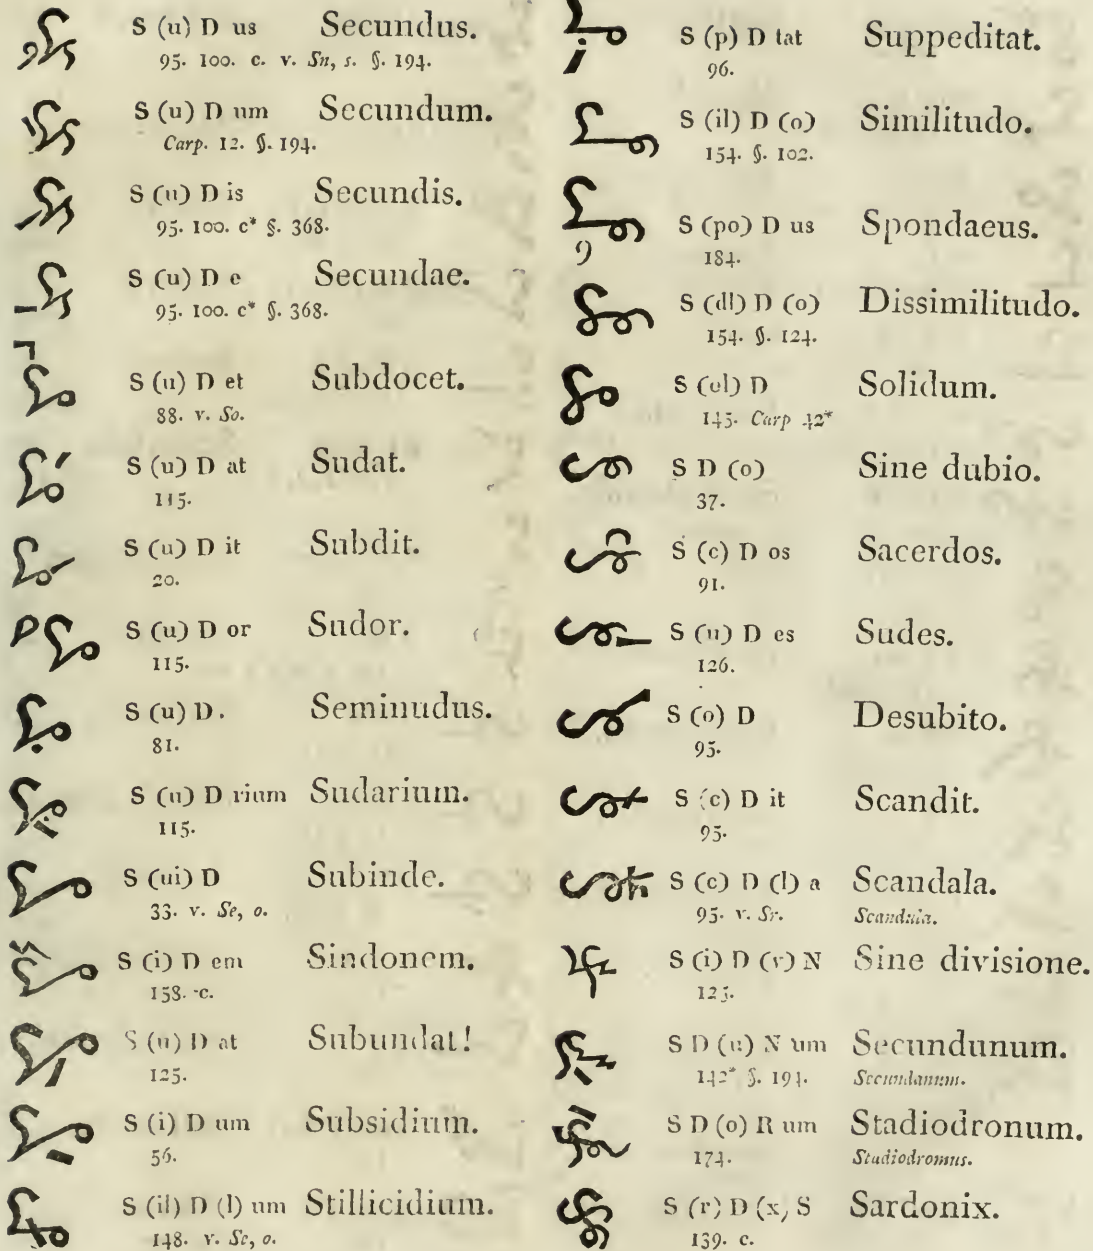 S (u) D us Secundus.
95. 100. c. v. Sn, s. §. 194.
S (u) D um Secundum.
Carp. 12. §. 194.
S (u) D is Secundis.
95. 100. c* §. 368.
S (u) D e Secundae.
95. 100. c* §. 368.
S (u) D et Subdocet.
88. v. So.
S (u) D at Sudat.
115.
S (u) D it Subdit.
20.
S (u) D or Sudor.
115.
S (u) D. Seminudus.
81.
S (u) D rium Sudarium.
115.
S (ui) D Subinde.
33. v. Se, o.
S (i) D em Sindonem.
158. c.
S (u) D at Subundat!
125.
S (i) D um Subsidium.
56.
S (il) D (l) um Stillicidium.
148. v. Se, o.
S (p) D tat Suppeditat.
96.
S (il) D (o) Similitudo.
154. §. 102.
S (po) D us Spondaeus.
184.
S (dl) D (o) Dissimilitudo.
154. §. 124.
S (ol) D Solidum.
145. Carp 42*
S D (o) Sine dubio.
37.
S (c) D os Sacerdos.
91.
S (u) D es Sudes.
126.
S (o) D Desubito.
95.
S (c) D it Scandit.
95.
S (c) D (l) a Scandala.
95. v. Sr. Scandula.
S (i) D (v) N Sine divisione.
S D (u) N um Secundunum.
142* §. 194. Secundanum.
S D (o) R um Stadiodronum.
174. Stadiodromus.
S (r) D (x) S Sardonix.
139. c.